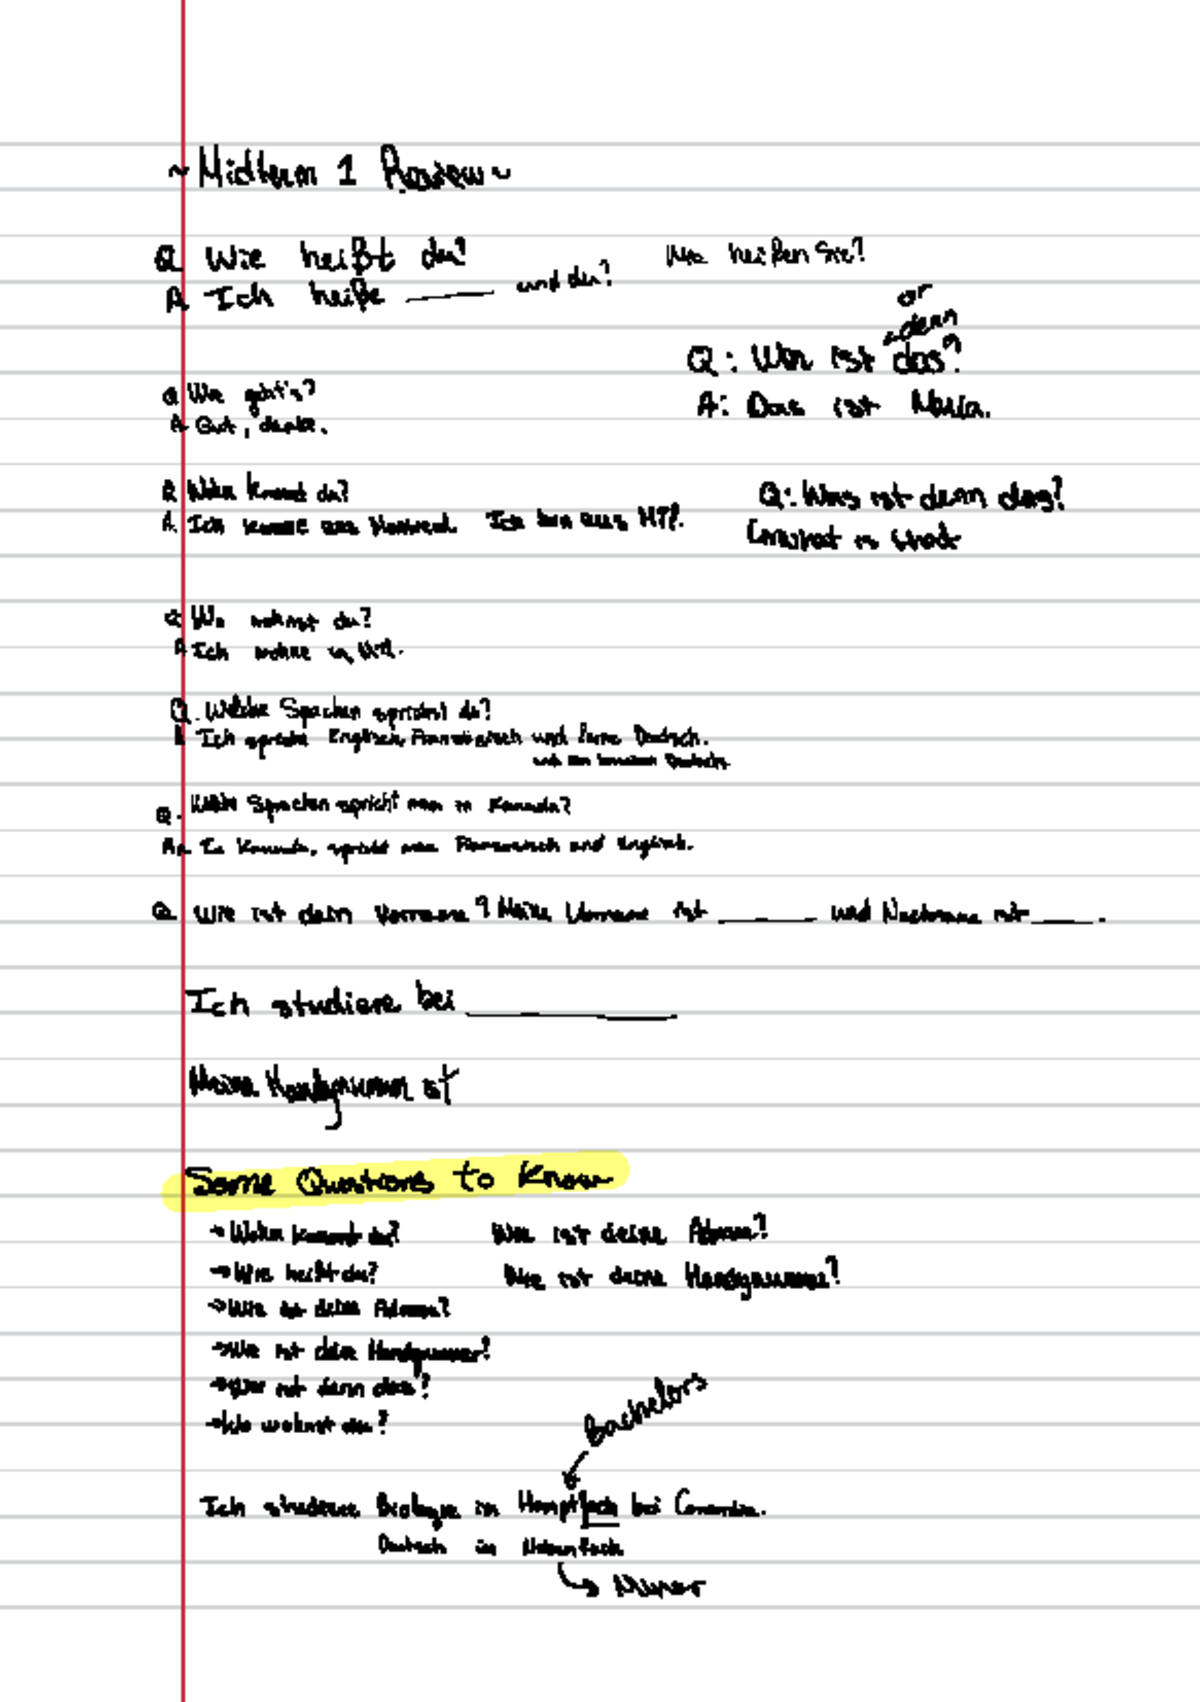 ~Midterm 1 Review~
Q Wie heißt du? Wie heißen Sie?
A Ich heiße ______ und du?
or
denn
Q: Wer ist das?
A: Das ist Maria.
Q Wie geht's?
A Gut, danke.
Q Woher kommst du?
A Ich komme aus Montreal. Ich bin aus MTL.
Q: Was ist denn das?
what is that
Q Wo wohnst du?
A Ich wohne in
Q. Welche Sprachen sprichst du?
A Ich spreche Englisch, Französisch und lerne Deutsch.
Deutsch.
Q. Welche Sprachen spricht man in Kanada?
A. In Kanada, spricht man Französisch und Englisch.
Q Wie ist dein Vorname? Mein Vorname ist ______ und Nachname ist ______.
Ich studiere bei ______
Meine Handynummer ist
Some Questions to Know
→Woher kommst du? Wie ist deine Adresse?
→Wie heißt du? Wie ist deine Handynummer?
→Wie ist deine Adresse?
→Wie ist deine Handynummer?
→Wer ist denn das?
→Wo wohnst du?
Bachelors
Ich studiere Biologie im Hauptfach bei Concordia.
Deutsch im Nebenfach
Minor